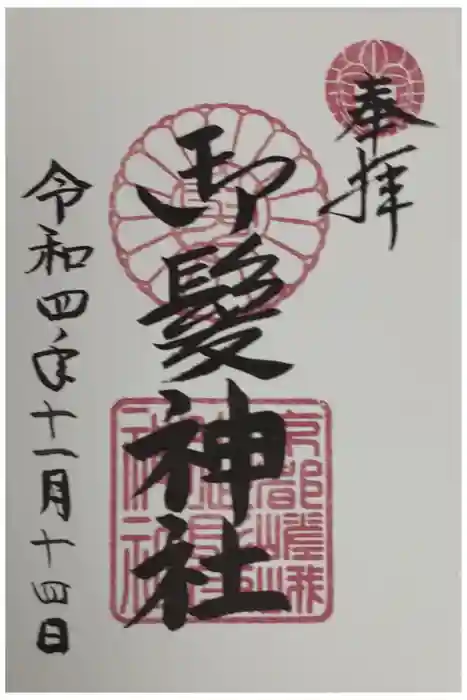 奉拝
御髪神社
京都嵯峨
御髪神社
令和四年十一月十四日